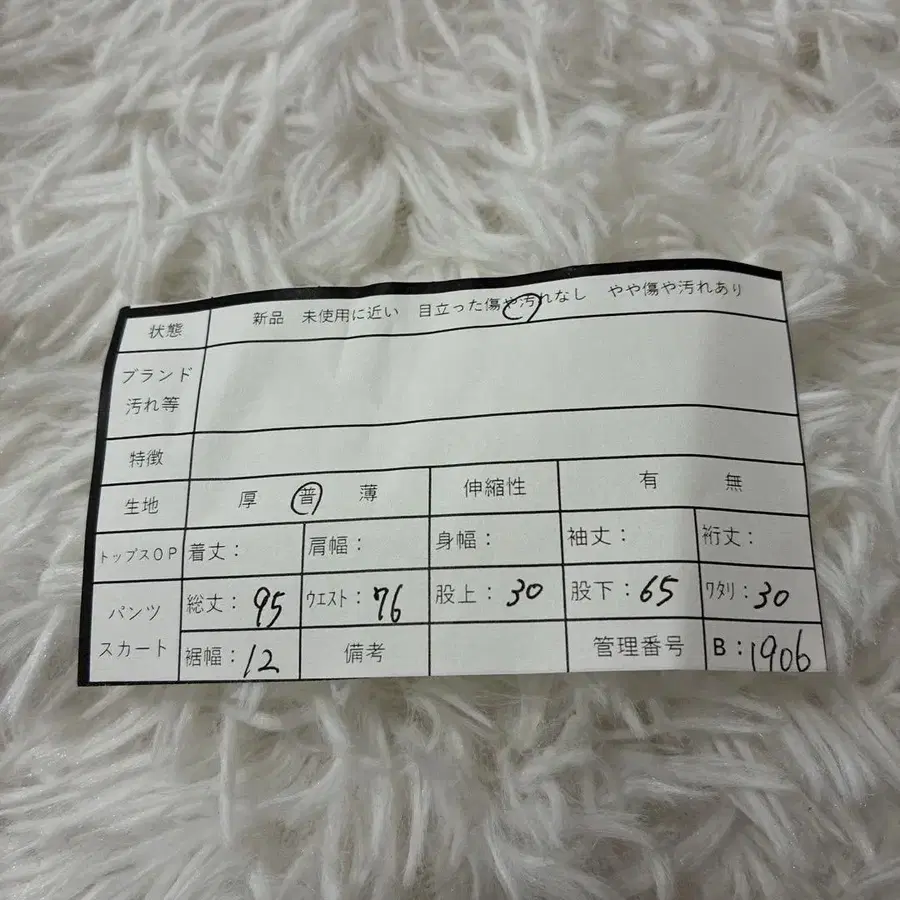 状態 新品 未使用に近い 目立った傷や汚れなし やや傷や汚れあり
ブランド
汚れ等
特徴
生地 厚 普 薄 伸縮性 有 無
トップスOP 着丈: 肩幅: 身幅: 袖丈: 裄丈:
パンツ
スカート
総丈: 95 ウエスト: 76 股上: 30 股下: 65 ワタリ: 30
裾幅: 12 備考 管理番号 B: 1906